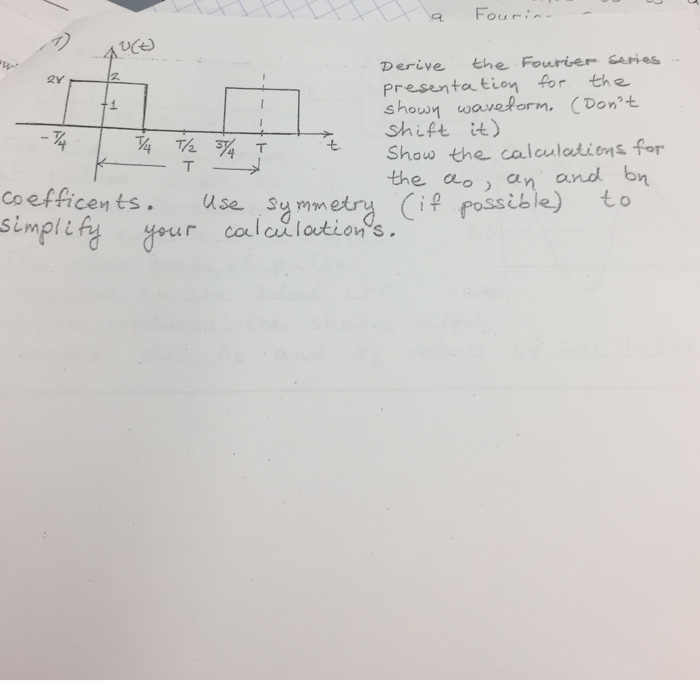 a Fourier
7)
v(t)
2V 2
1
-T/4 T/4 T/2 3T/4 T t
T
Derive the Fourier Series
presentation for the
shown waveform. (Don't
shift it)
Show the calculations for
the a0, an and bn
coefficents. Use symmetry (if possible) to
simplify your calculations.